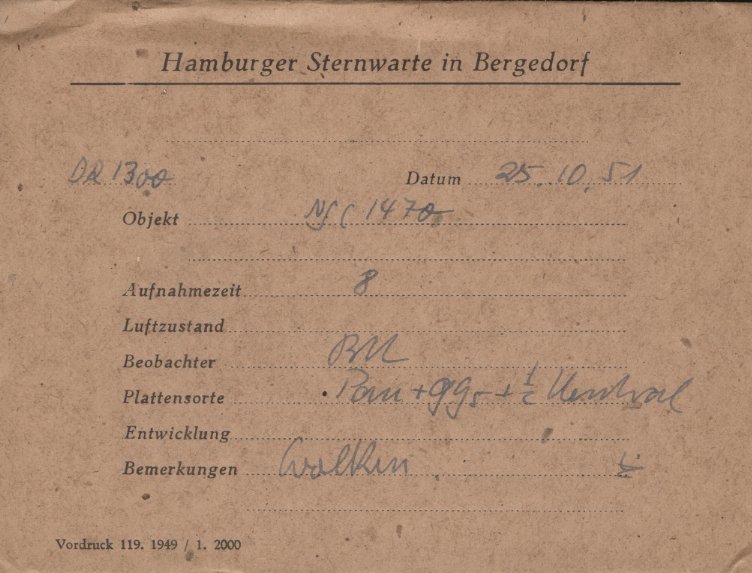 Hamburger Sternwarte in Bergedorf
DR 1300 Datum 25.10.51
Objekt NGC 1470
Aufnahmezeit 8
Luftzustand
Beobachter
Plattensorte Pan + GG5 + 1/2 Neutral
Entwicklung
Bemerkungen Wolken
Vordruck 119. 1949 / 1. 2000